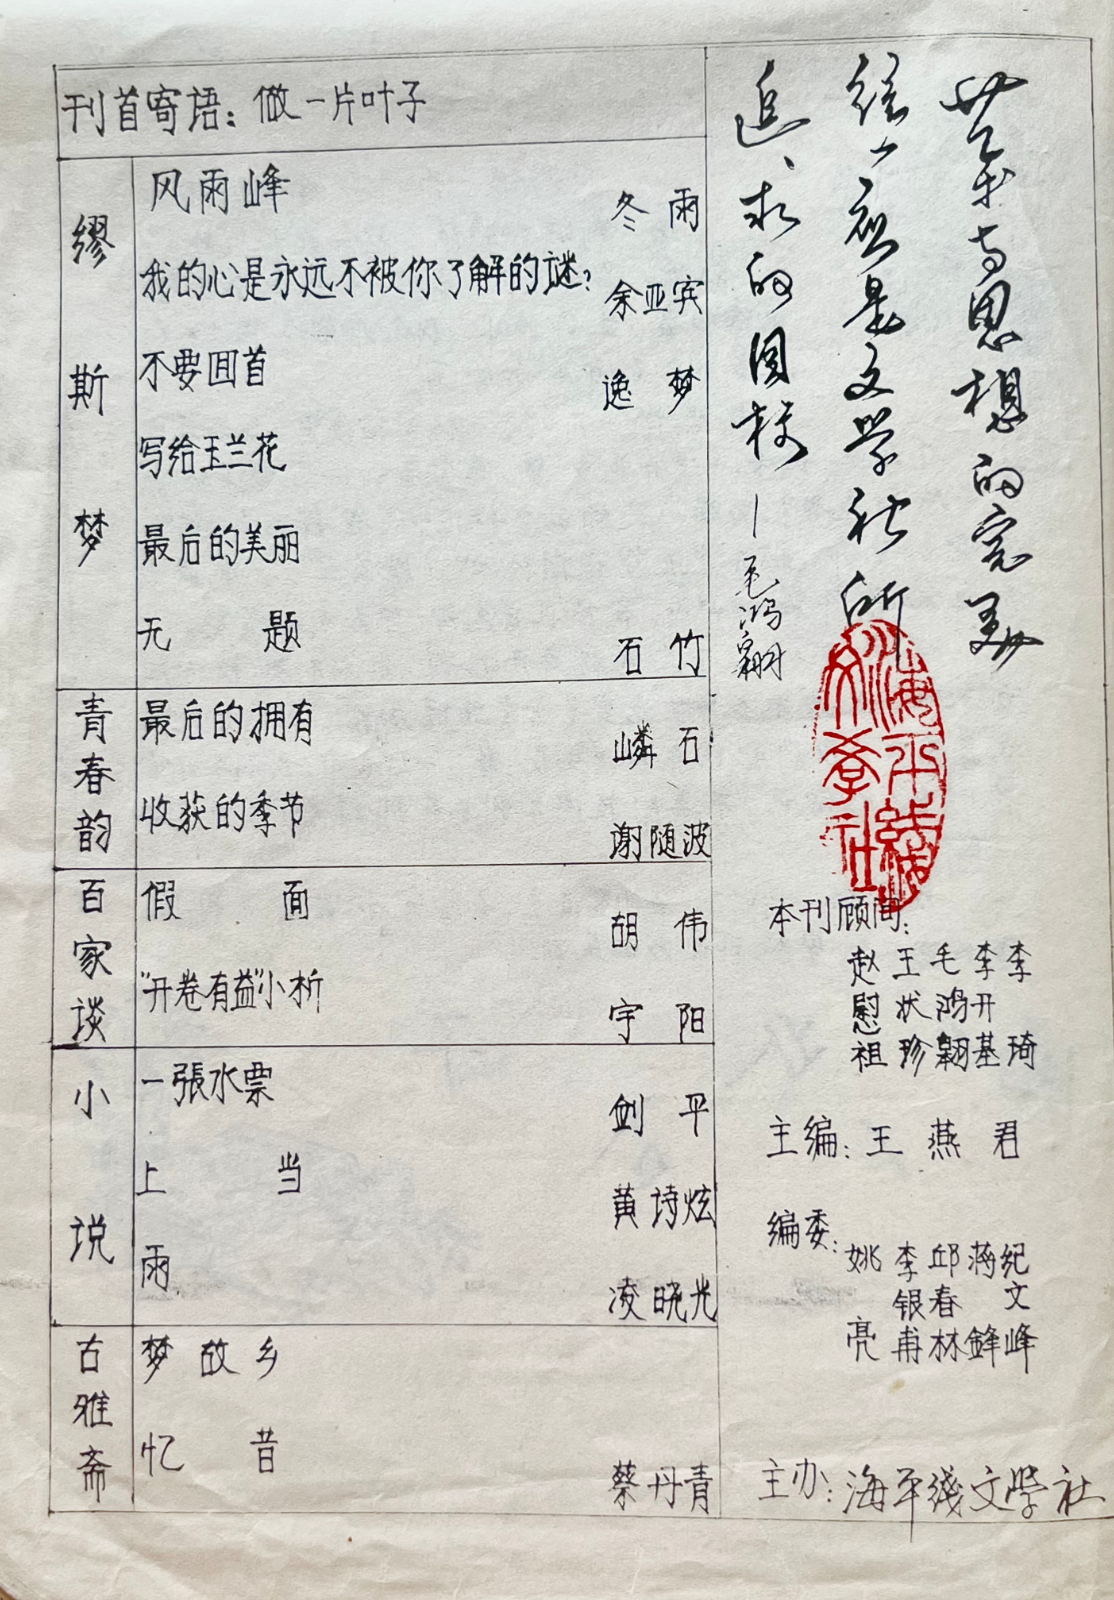 刊首寄语：做一片叶子
缪斯梦
风雨峰
冬雨
我的心是永远不被你了解的谜？
余亚宾
不要回首
逸梦
写给玉兰花
最后的美丽
无题
石竹
青春韵
最后的拥有
嶙石
收获的季节
谢随波
百家谈
假面
胡伟
“开卷有益”小析
宇阳
小说
一張水票
剑平
上当
黄诗炫
雨
凌晓光
古雅斋
梦故乡
忆昔
蔡丹青
艺术与思想的完美
统一应是文学社所
追求的目标
—毛鸿翱
海平线文学社
本刊顾问：
赵慰祖
王状珍
毛鸿翱
李开基
李琦
主编：王燕君
编委：
姚亮
李银甫
邱春林
蒋鋒
纪文峰
主办：海平线文学社